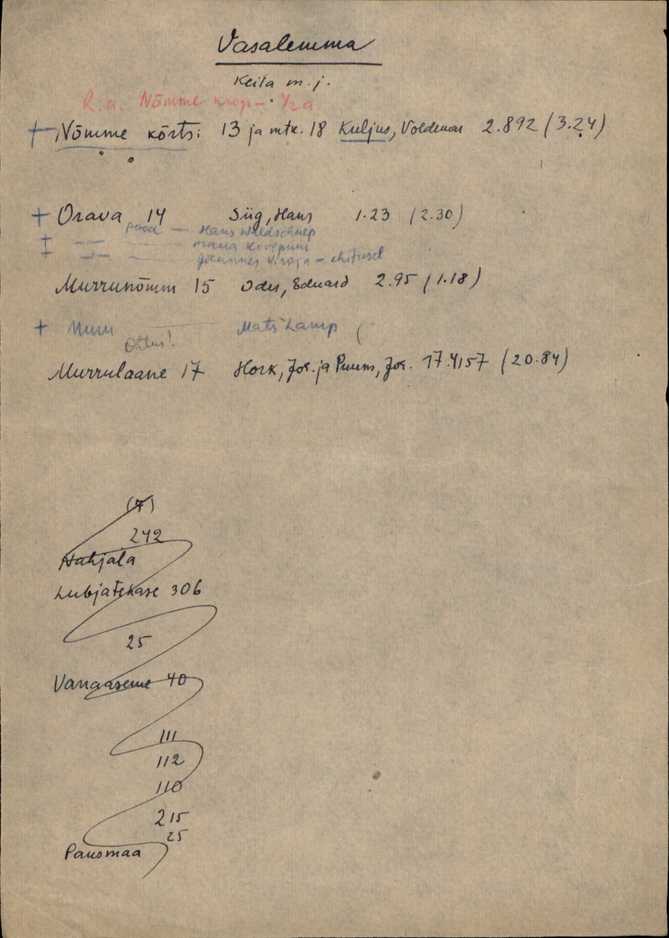 Vasalemma
Keila m.j.
R.a. Nõmme
+ Nõmme kõrts: 13 ja mtk. 18 Kuljus, Voldemar 2.892 (3.24)
+ Orava 14 Siig, Hans 1.23 (2.30)
pood — Hans
+ — —
+ — — Johannes — ehitused
Murrunõmm 15 Oder, Eduard 2.95 (1.18)
+ Muru — Mats Lamp (
Murrulaane 17 Hork, Joh. ja Puum, Joh. 17.4157 (20.84)
(7)
242
Hahjala
Lubjatekase 306
25
Vanaaseme 40
111
112
110
215
25
Pausmaa